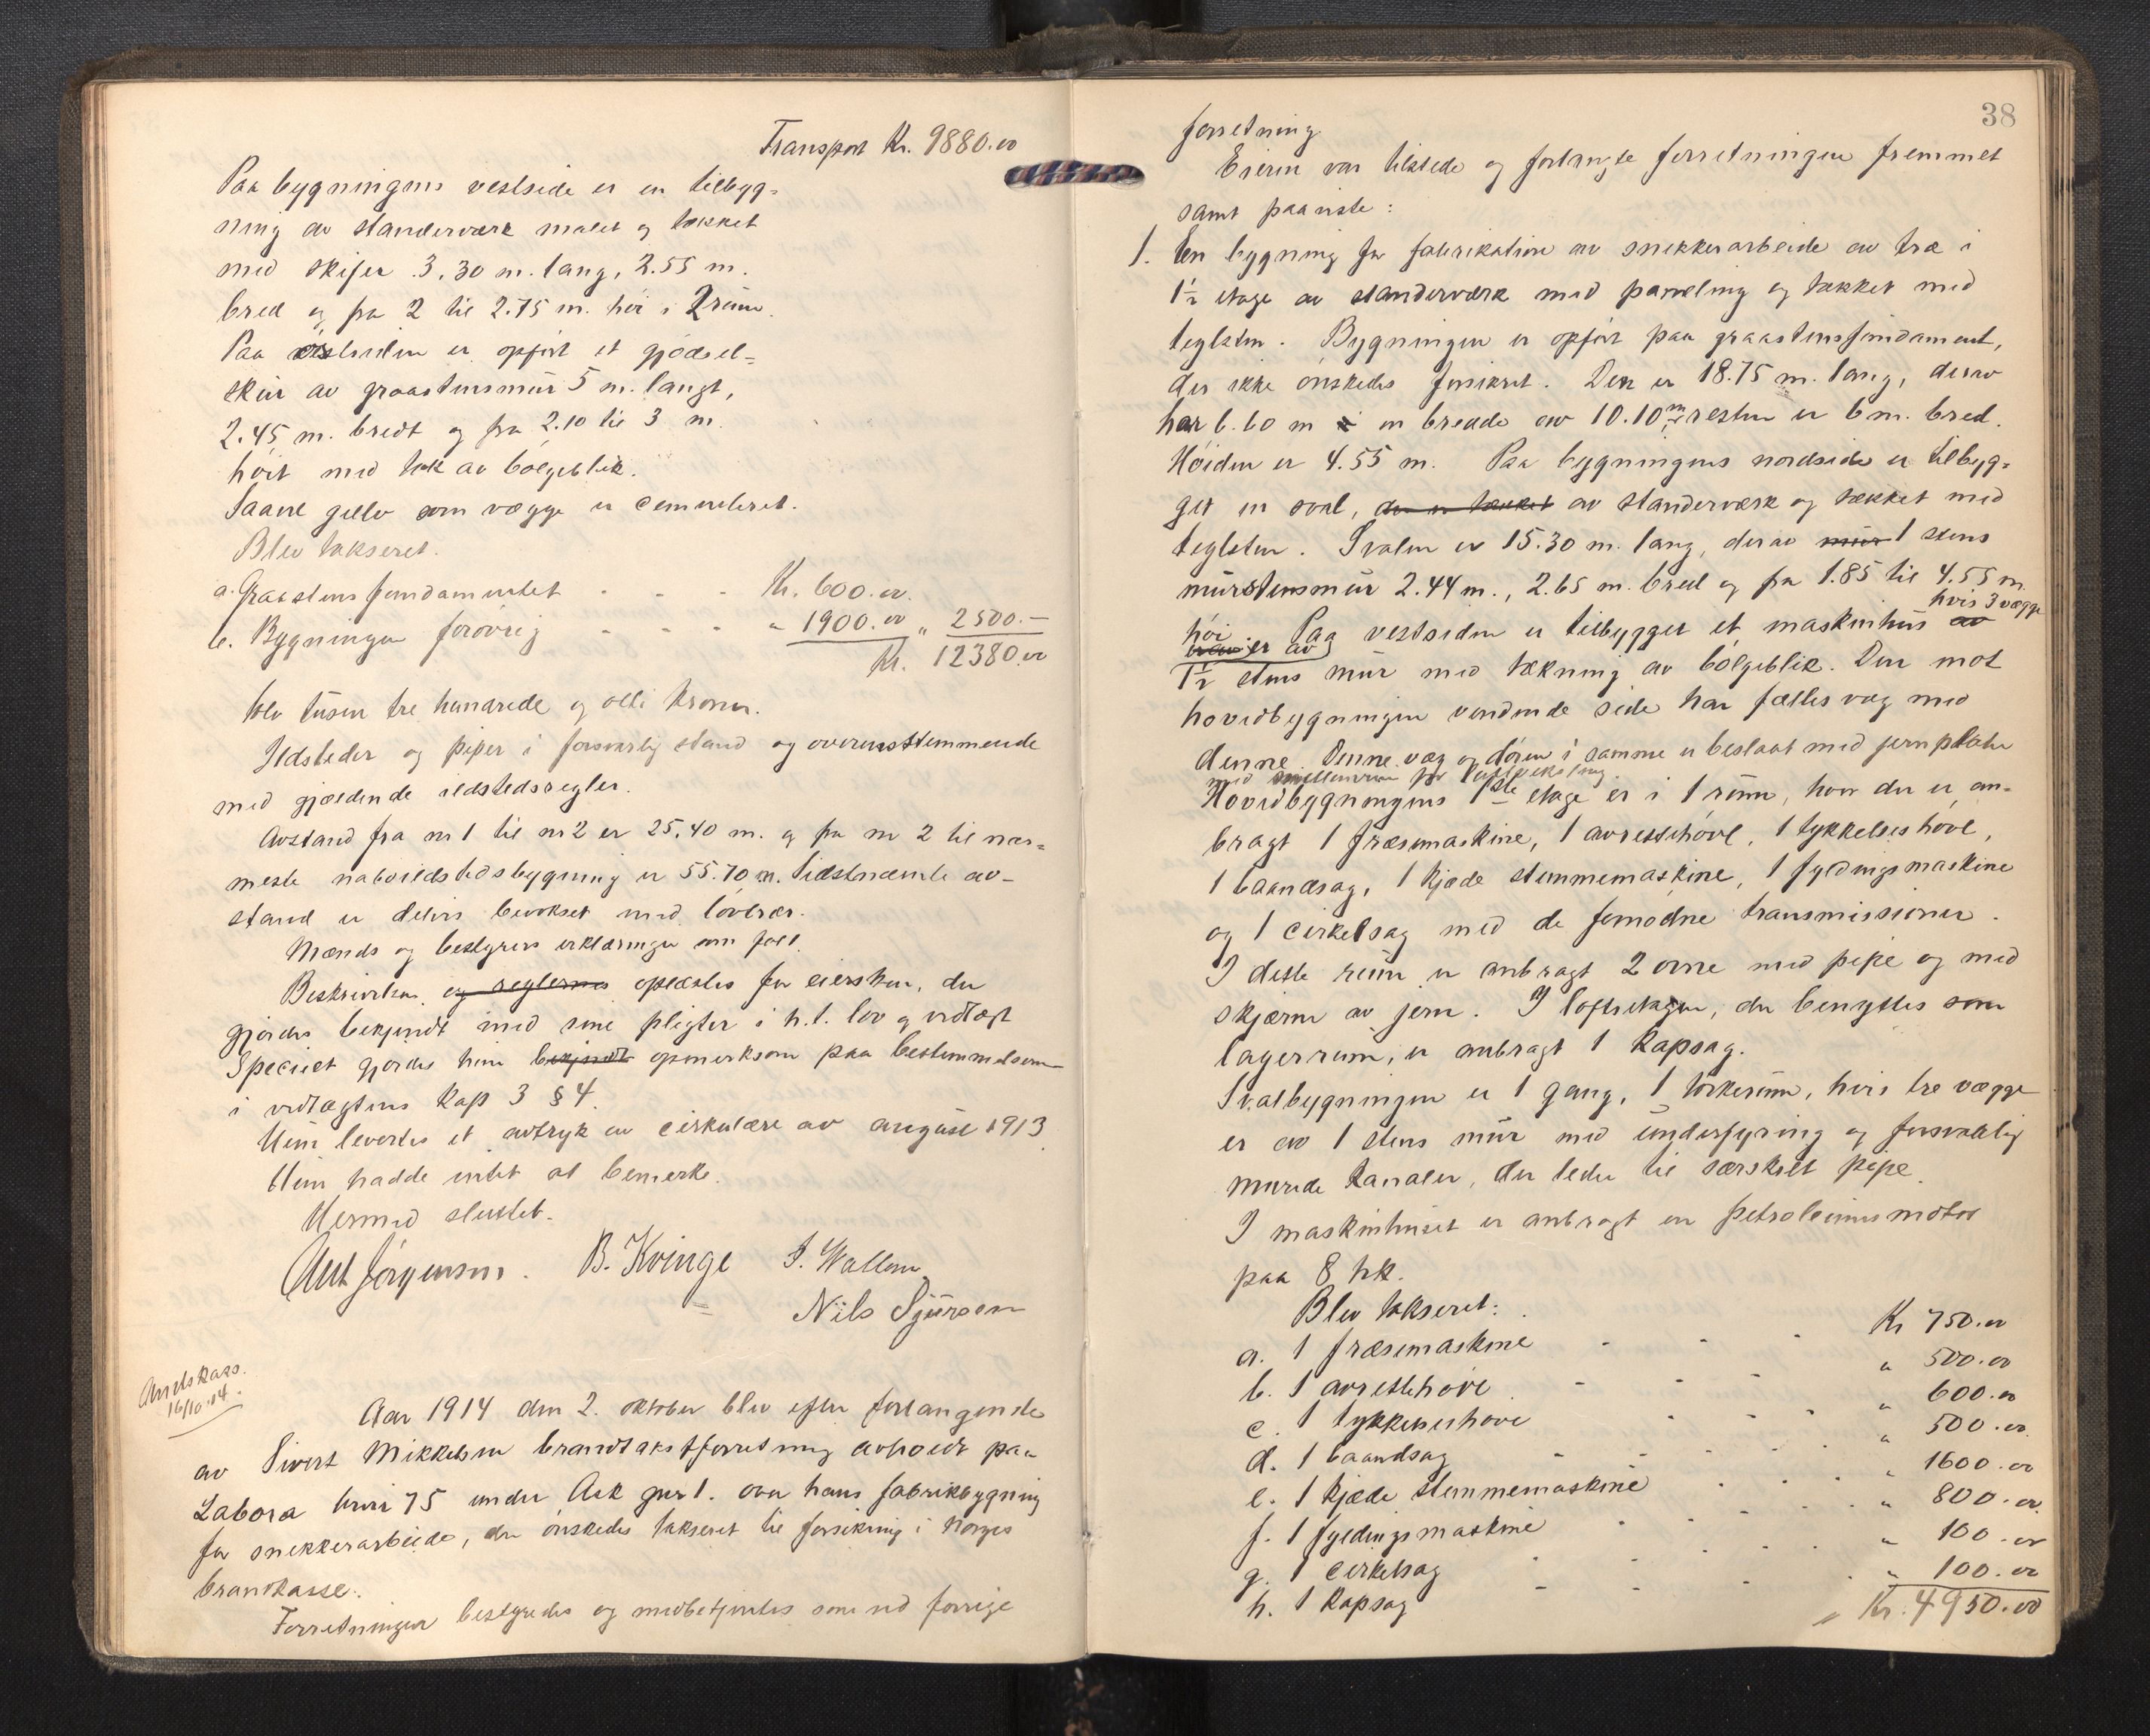 Transport Kr. 9880.00
Paa bygningens vestside er en tilbyg-
ning av standerværk malet og tækket
med skifer 3,30 m. lang, 2.55 m.
bred og fra 2 til 2.75 m. høi i 2 rum.
Paa østsiden er opført et gjødsel-
skur av graastensmur 5 m. langt,
2.45 m. bredt og fra 2.10 til 3 m.
høit med tak av bølgeblik.
Saavel gulv som vægge er cementeret.
Blev takseret.
a. Graastensfundamentet - - - Kr. 600.00.
b. Bygningen forøvrig - - - - " 1900.00 " 2500.-
Kr. 12380.00
tolv tusen tre hundrede og otti kroner.
Ildsteder og piper i forsvarlig stand og overensstemmende
med gjældende ildstedsregler.
Avstand fra nr 1 til nr 2 er 25,40 m. og fra nr 2 til nær-
meste naboildstedsbygning er 55.70 m. Sidstnævnte av-
stand er delvis bevokset med løvtrær.
Mænds og bestyrers erklæringer som før.
Beskrivelsen og reglerne oplæstes for eiersken, der
gjordes bekjendt med sine pligter i h.t. lov og vedtægt
Specielt gjordes hun bekjendt opmerksom paa bestemmelserne
i vedtægtens kap 3 § 4.
Hun levertes et avtryk av cirkulære av august 1913.
Hun hadde intet at bemerke.
Hermed sluttet.
Ant Jørgensen. B. Kvinge J. Wallem
Nils Sjursen
Andskass.
16/10.14.
Aar 1914 den 2. oktober blev efter forlangende
av Sivert Mikkelsen brandtakstforretning avholdt paa
Labora bnr 75 under Ask gnr 1. over hans fabrikbygning
for snekkerarbeide, der ønskedes takseret til forsikring i Norges
brandkasse.
Forretningen bestyredes og medbetjentes som ved forrige
38
forretning
Eieren var tilstede og forlangte forretningen fremmet
samt paaviste:
1. En bygning for fabrikation av snekkerarbeide av træ i
1½ etage av standerværk med paneling og tækket med
teglsten. Bygningen er opført paa graastensfundament,
der ikke ønskedes forsikret. Den er 18.75 m. lang, derav
har 6.60 m i en bredde av 10.10 m, resten er 6 m. bred.
Høiden er 4.55 m. Paa bygningens nordside er tilbyg-
get en sval, der er tækket av standerværk og tækket med
teglsten. Svalen er 15.30 m. lang, derav mur 1 stens
murstensmur 2.44 m., 2.65 m. bred og fra 1.85 til 4.55 m.
høi Paa vestsiden er tilbygget et maskinhus av hvis 3 vægge
er av
1½ stens mur med tækning av bølgeblik. Den mot
hovedbygningen vendende side har fælles væg med
denne. Denne væg og døren i samme er beslaat med jernplater
med mellemrum for luftveksling.
Hovedbygningens 1ste etage er i 1 rum, hvor der er an-
bragt 1 fræsemaskine, 1 avrettehøvl, 1 tykkelseshøvl,
1 baandsag, 1 kjæde stemmemaskine, 1 fyldingsmaskine
og 1 cirkelsag med de fornødne transmissioner.
I dette rum er anbragt 2 ovne med pipe og med
skjærm av jern. I loftsetagen, der benyttes som
lagerrum, er anbragt 1 kapsag.
I valbygningen er 1 gang, 1 tørkerum, hvis tre vægge
er av 1 stens mur med underfyring og forsvarlig
murede kanaler, der leder til særskilt pipe.
I maskinhuset er anbragt en petroleumsmotor
paa 8 hk.
Blev takseret:
a. 1 fræsemaskine - - - Kr 750.00
b. 1 avrettehøvl - - - " 500.00
c. 1 tykkelseshøvl - - - " 600.00
d. 1 baandsag - - - " 500.00
e. 1 kjæde stemmemaskine - - - " 1600.00
f. 1 fyldingsmaskine - - - " 800.00
g. 1 cirkelsag - - - " 100.00
h. 1 kapsag - - - " 100.00
Kr. 4950.00